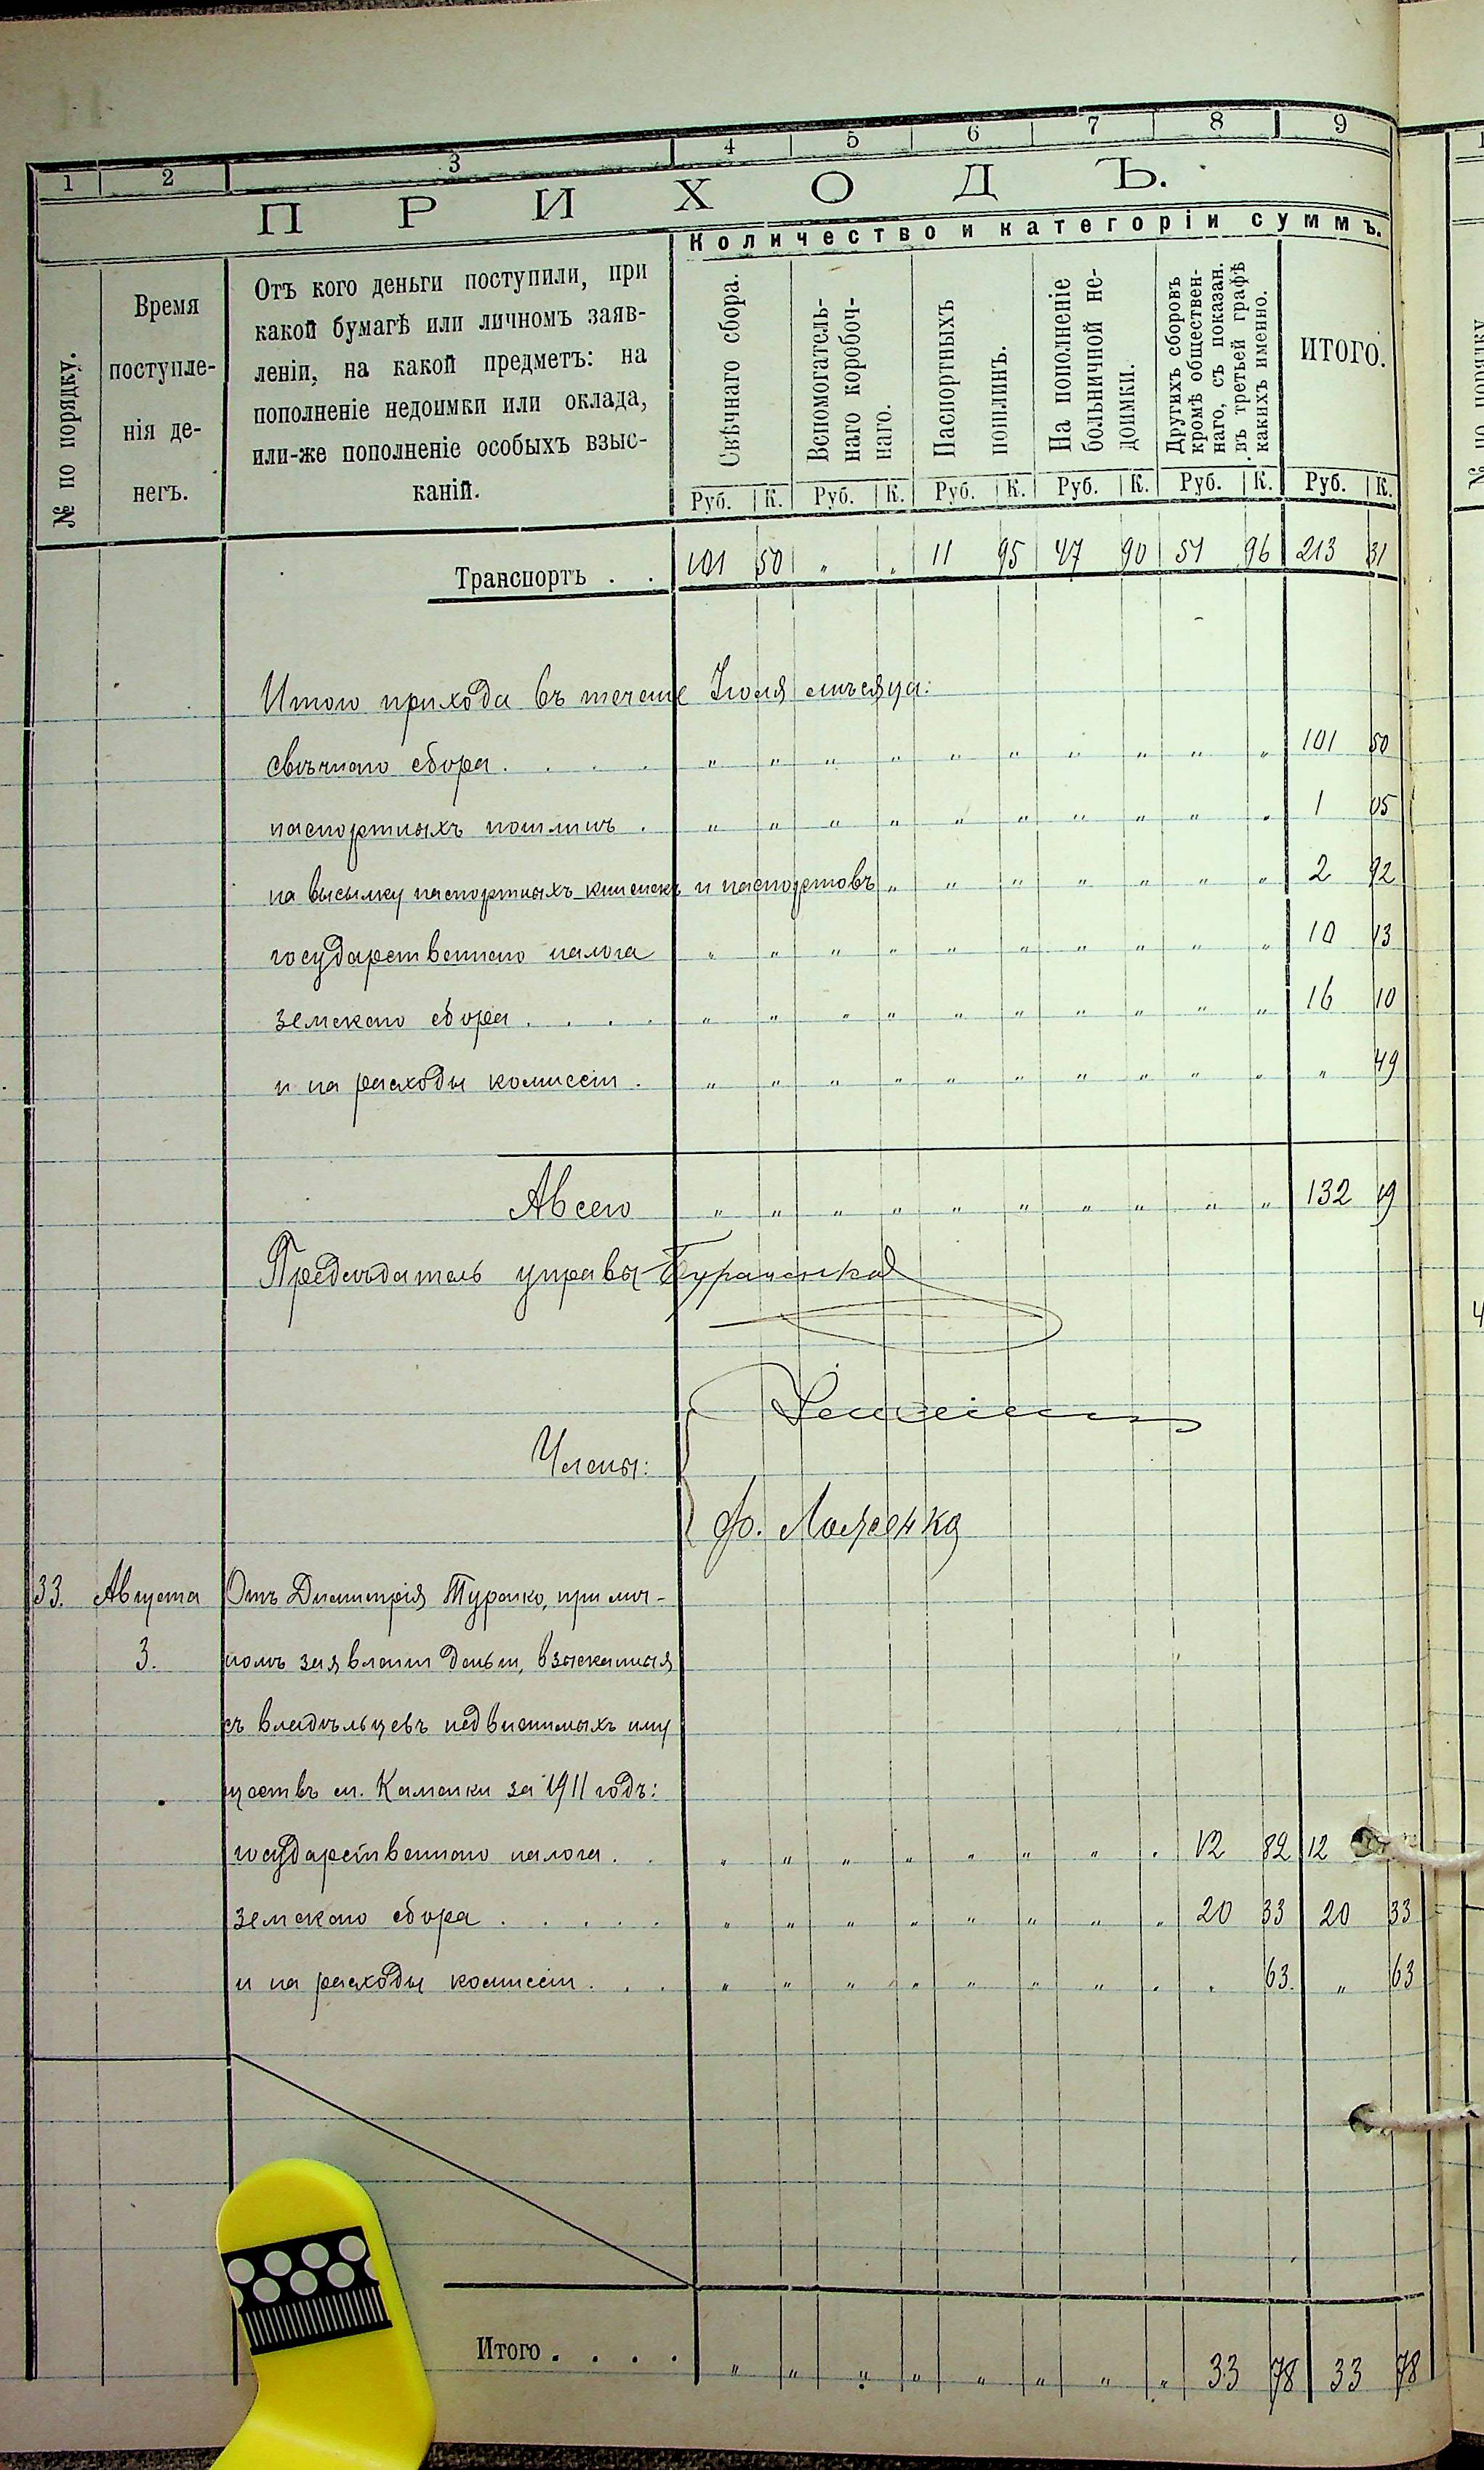 1 2 3 4 5 6 7 8 9
ПРИХОДЪ.
Количество и категоріи суммъ.
№ по порядку.
Время
поступле-
нія де-
негъ.
Отъ кого деньги поступили, при
какой бумагѣ или личномъ заяв-
леніи, на какой предметъ: на
пополненіе недоимки или оклада,
или-же пополненіе особыхъ взыс-
каній.
Свѣчнаго сбора.
Вспомогатель-
наго коробоч-
наго.
Паспортныхъ
пошлинъ.
На пополненіе
больничной не-
доимки.
Другихъ сборовъ
кромѣ обществен-
наго, съ показан.
въ третьей графѣ
какихъ именно.
ИТОГО.
Руб. К. Руб. К. Руб. К. Руб. К. Руб. К. Руб. К.
Транспортъ . . 101 50 " " 11 95 47 90 51 96 213 31
Итого прихода въ теченіе Іюля мѣсяца:
свѣчного сбора . . . . " " " " " " " " " " 101 50
паспортныхъ пошлинъ . " " " " " " " " " " 1 05
на высылку паспортныхъ книжекъ и паспортовъ " " " " " " " 2 92
государственного налога " " " " " " " " " " 10 13
земского сбора . . . . " " " " " " " " " " 16 10
и на расходы комиссіи . " " " " " " " " " " " 49
А всего " " " " " " " " " " 132 19
Предсѣдатель управы
Члены:
33. Августа Отъ Дмитрія Туранко, при лич-
3. номъ заявленіи деньги, взысканныя
съ владѣльцевъ недвижимыхъ иму
ществъ м. Каменки за 1911 годъ:
государственного налога . . " " " " " " " " 12 82 12
земского сбора . . . . . " " " " " " " " 20 33 20 33
и на расходы комиссіи . . . " " " " " " " " " 63. " 63
Итого . . . . " " " " " " " " 33 78 33 78